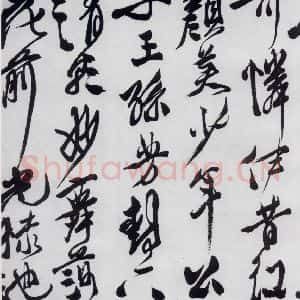 可憐伊昔紅
顏美少年公
子王孫芳樹下
清歌妙舞落
花前光禄池
Shufawang.cn